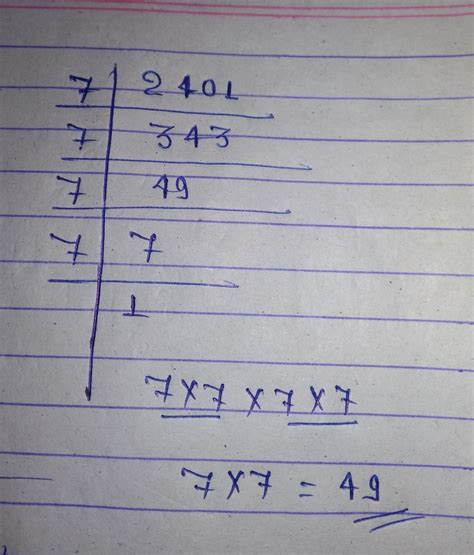 7 2401
7 343
7 49
7 7
1
7×7×7×7
7×7=49